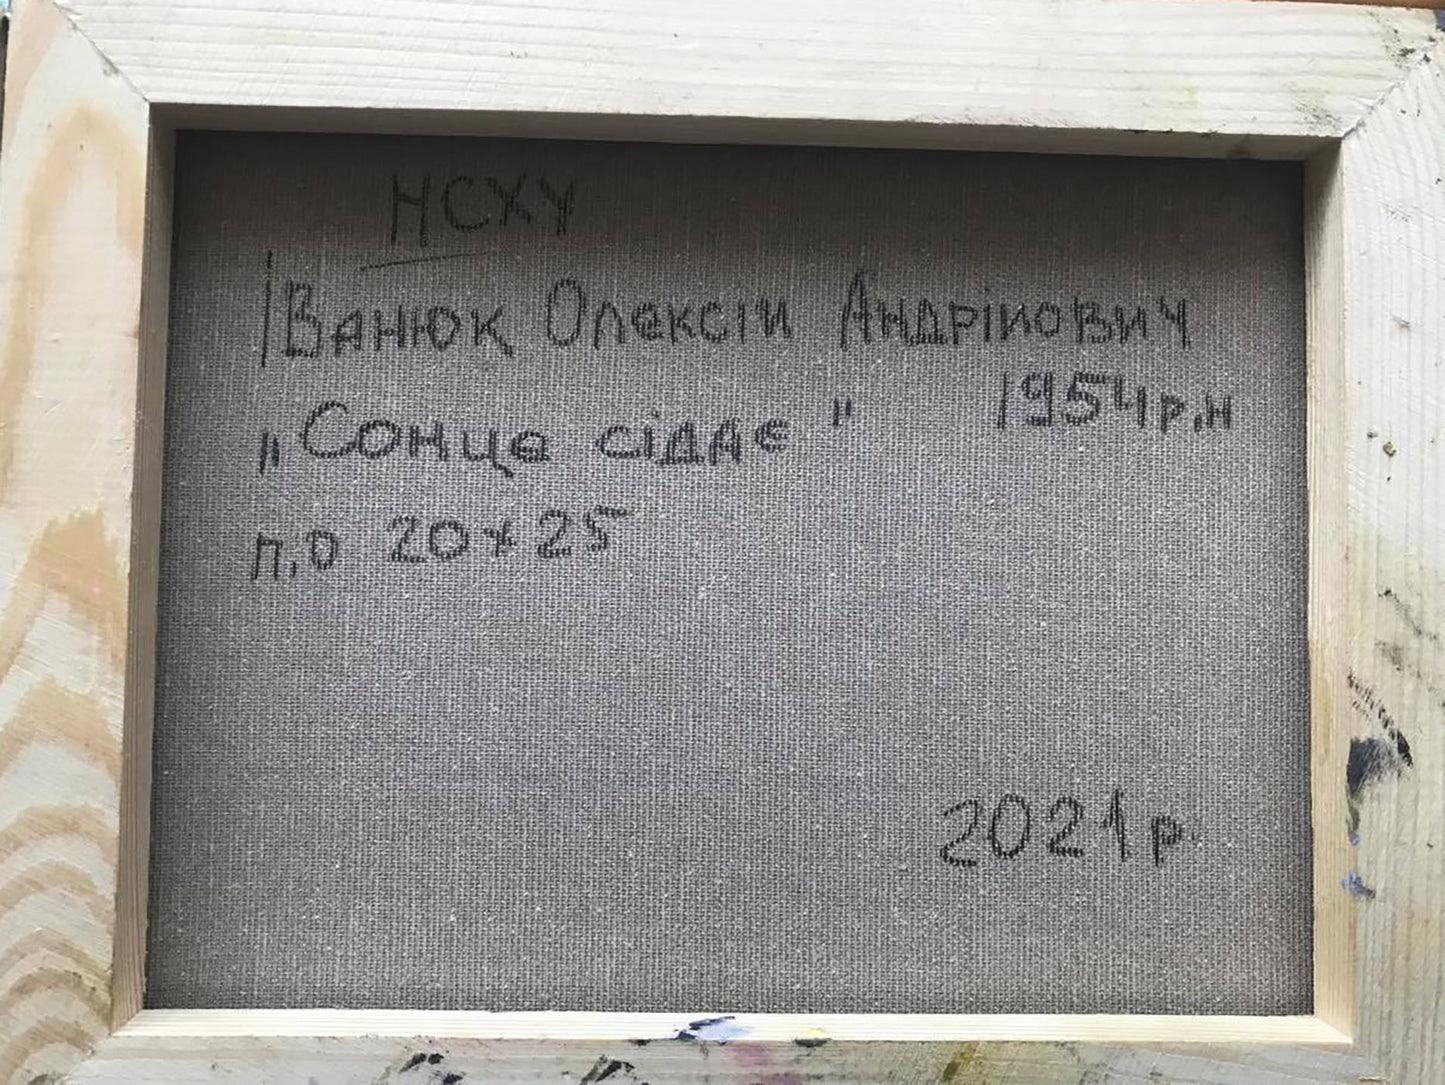 НСХУ
Іванюк Олексій Андрійович
„Сонце сідає" 1954р.н
п.о 20х25
2021р.